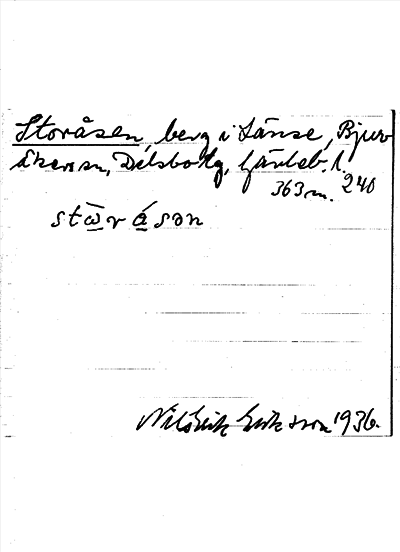 Storåsen, berg i Länse, Bjur
åkers sn, Delsbo tg, Gävleb. l.
363 m. 240
stω̄r ásən
Nils Erik Eriksson 1936.